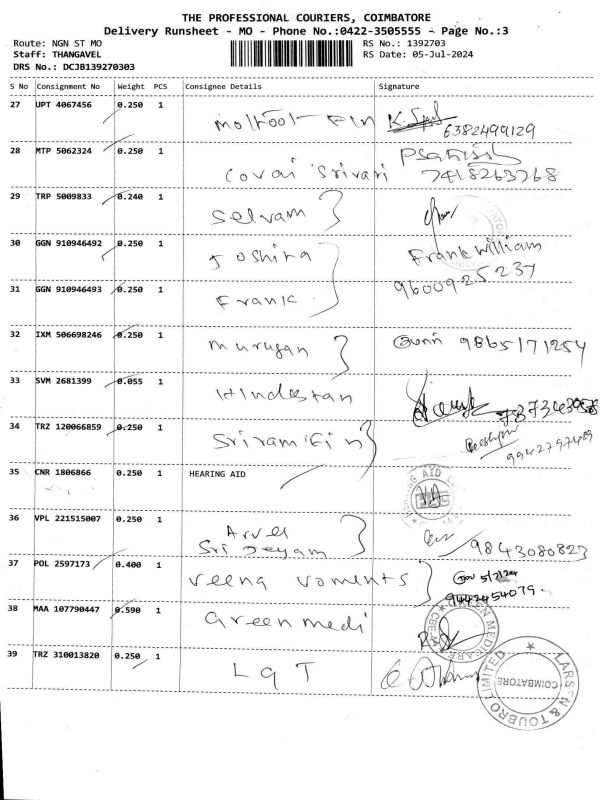 THE PROFESSIONAL COURIERS, COIMBATORE
Delivery Runsheet - MO - Phone No.:0422-3505555 - Page No.:3
Route: NGN ST MO
RS No.: 1392703
Staff: THANGAVEL
RS Date: 05-Jul-2024
DRS No.: DCJB139270303
S No Consignment No Weight PCS Consignee Details Signature
27 UPT 4067456 0.250 1
6382499129
28 MTP 5062324 0.250 1 Covai Srivari
7418263768
29 TRP 5009833 0.240 1 Selvam
30 GGN 910946492 0.250 1 Joshira Frank William
9600925237
31 GGN 910946493 0.250 1 Frank
32 IXM 506698246 0.250 1 Murugan 9865171254
33 SVM 2681399 0.055 1 Hindestan
34 TRZ 120066859 0.250 1 Sriram Fin
9942797409
35 CNR 1806866 0.250 1 HEARING AID
36 VPL 221515007 0.250 1
Sri Jeyam 9843080823
37 POL 2597173 0.400 1 veena voments
9442454079
38 MAA 107790447 0.590 1 Greenmedi
39 TRZ 310013820 0.250 1 L q T
LARSEN & TOUBRO LIMITED
COIMBATORE